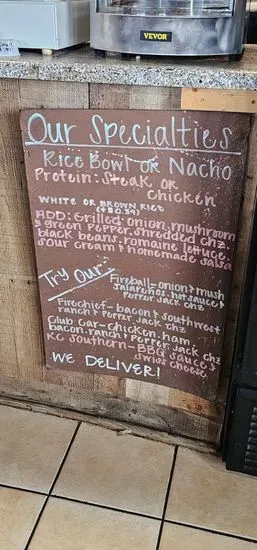 VEVOR
Our Specialties
Rice Bowl or Nacho
Protein: Steak or
Chicken
WHITE OR BROWN RICE
(+$0.39)
ADD: Grilled: onion, mushroom
& Green Pepper, shredded chz.
black beans, romaine lettuce,
sour cream & homemade salsa
Try Our
Fireball-onion & mush
Jalapeños, hot sauce &
Pepper Jack chz
Firechief-bacon & southwest
ranch & Pepper Jack chz
Club Car-Chicken, ham,
bacon, ranch & pepper Jack chz
KC Southern-BBQ sauce &
swiss cheese
WE DELIVER!